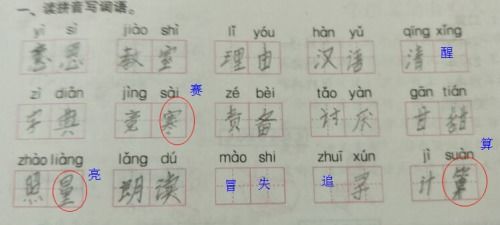 一、读拼音写词语。
yì sì jiào shì lǐ yóu hàn yǔ qīng xǐng
意思 教室 理由 汉语 清醒
zì diǎn jìng sài zé bèi tǎo yàn gān tián
赛
字典 竞寒 责备 讨厌 甘甜
zhào liàng lǎng dú mào shi zhuī xún jì suàn
亮 算
照量 朗读 冒失 追寻 计算